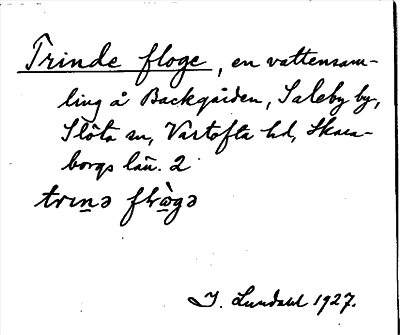 Trinde floge, en vattensam-
ling å Backgården, Saleby by,
Slöta sn, Vartofta hd, Skara-
borgs län. 2
I. Lundahl 1927.